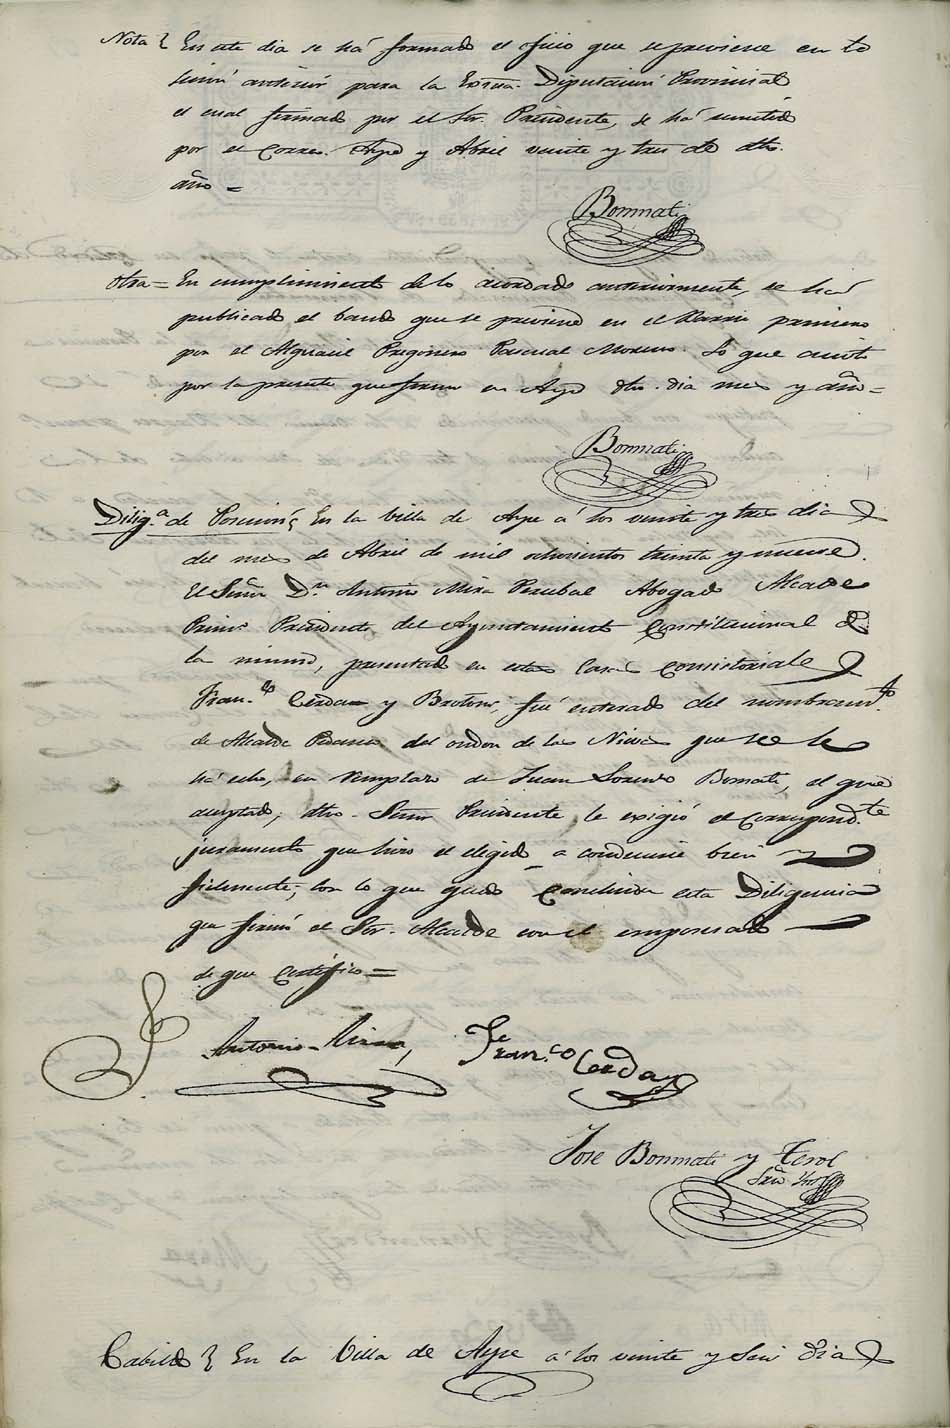 Nota } En este dia se há formado el oficio que se previene en la
sesion anterior para la Exma. Diputacion Provincial
el cual firmado por el Sor. Presidente, se há remitido
por el Correo. Aspe y Abril veinte y tres de dho.
año =
Bonmati
Otra = En cumplimiento de lo acordado anteriormente, se há
publicado el bando que se previene en el Parrafo primero
por el Alguacil Pregonero Pascual Moreno. Lo que anoto
por la presente que firmo en Aspe dho. dia mes y año =
Bonmati
Dilig.a de Posecion } En la Villa de Aspe á los veinte y tres dia
del mes de Abril de mil ochocientos treinta y nueve.
El Señor Dn. Antonio Mira Percebal Abogado Alcalde
Primo. Presidente del Ayuntamiento Constitucional de
la misma, presentado en estas Casas Consistoriales
Fran.co Cerdan y Brotons, fué enterado del nombram.to
de Alcalde Pedaneo del ordon de las Nieves que se le
há echo, en remplazo de Juan Lorenzo Bonmati, el que
aceptado, dho. Señor Presidente le exigió el correspond.te
juramento que hizo el elegido a conducirse bien y
fielmente; con lo que quedó concluida esta Diligencia
que firmó el Sor. Alcalde con el emposesado
de que Certifico =
Antonio Mira, Fran.co Cerdan
Jose Bonmati y Terol
Srio.
Cabildo } En la Villa de Aspe á los veinte y seis dia